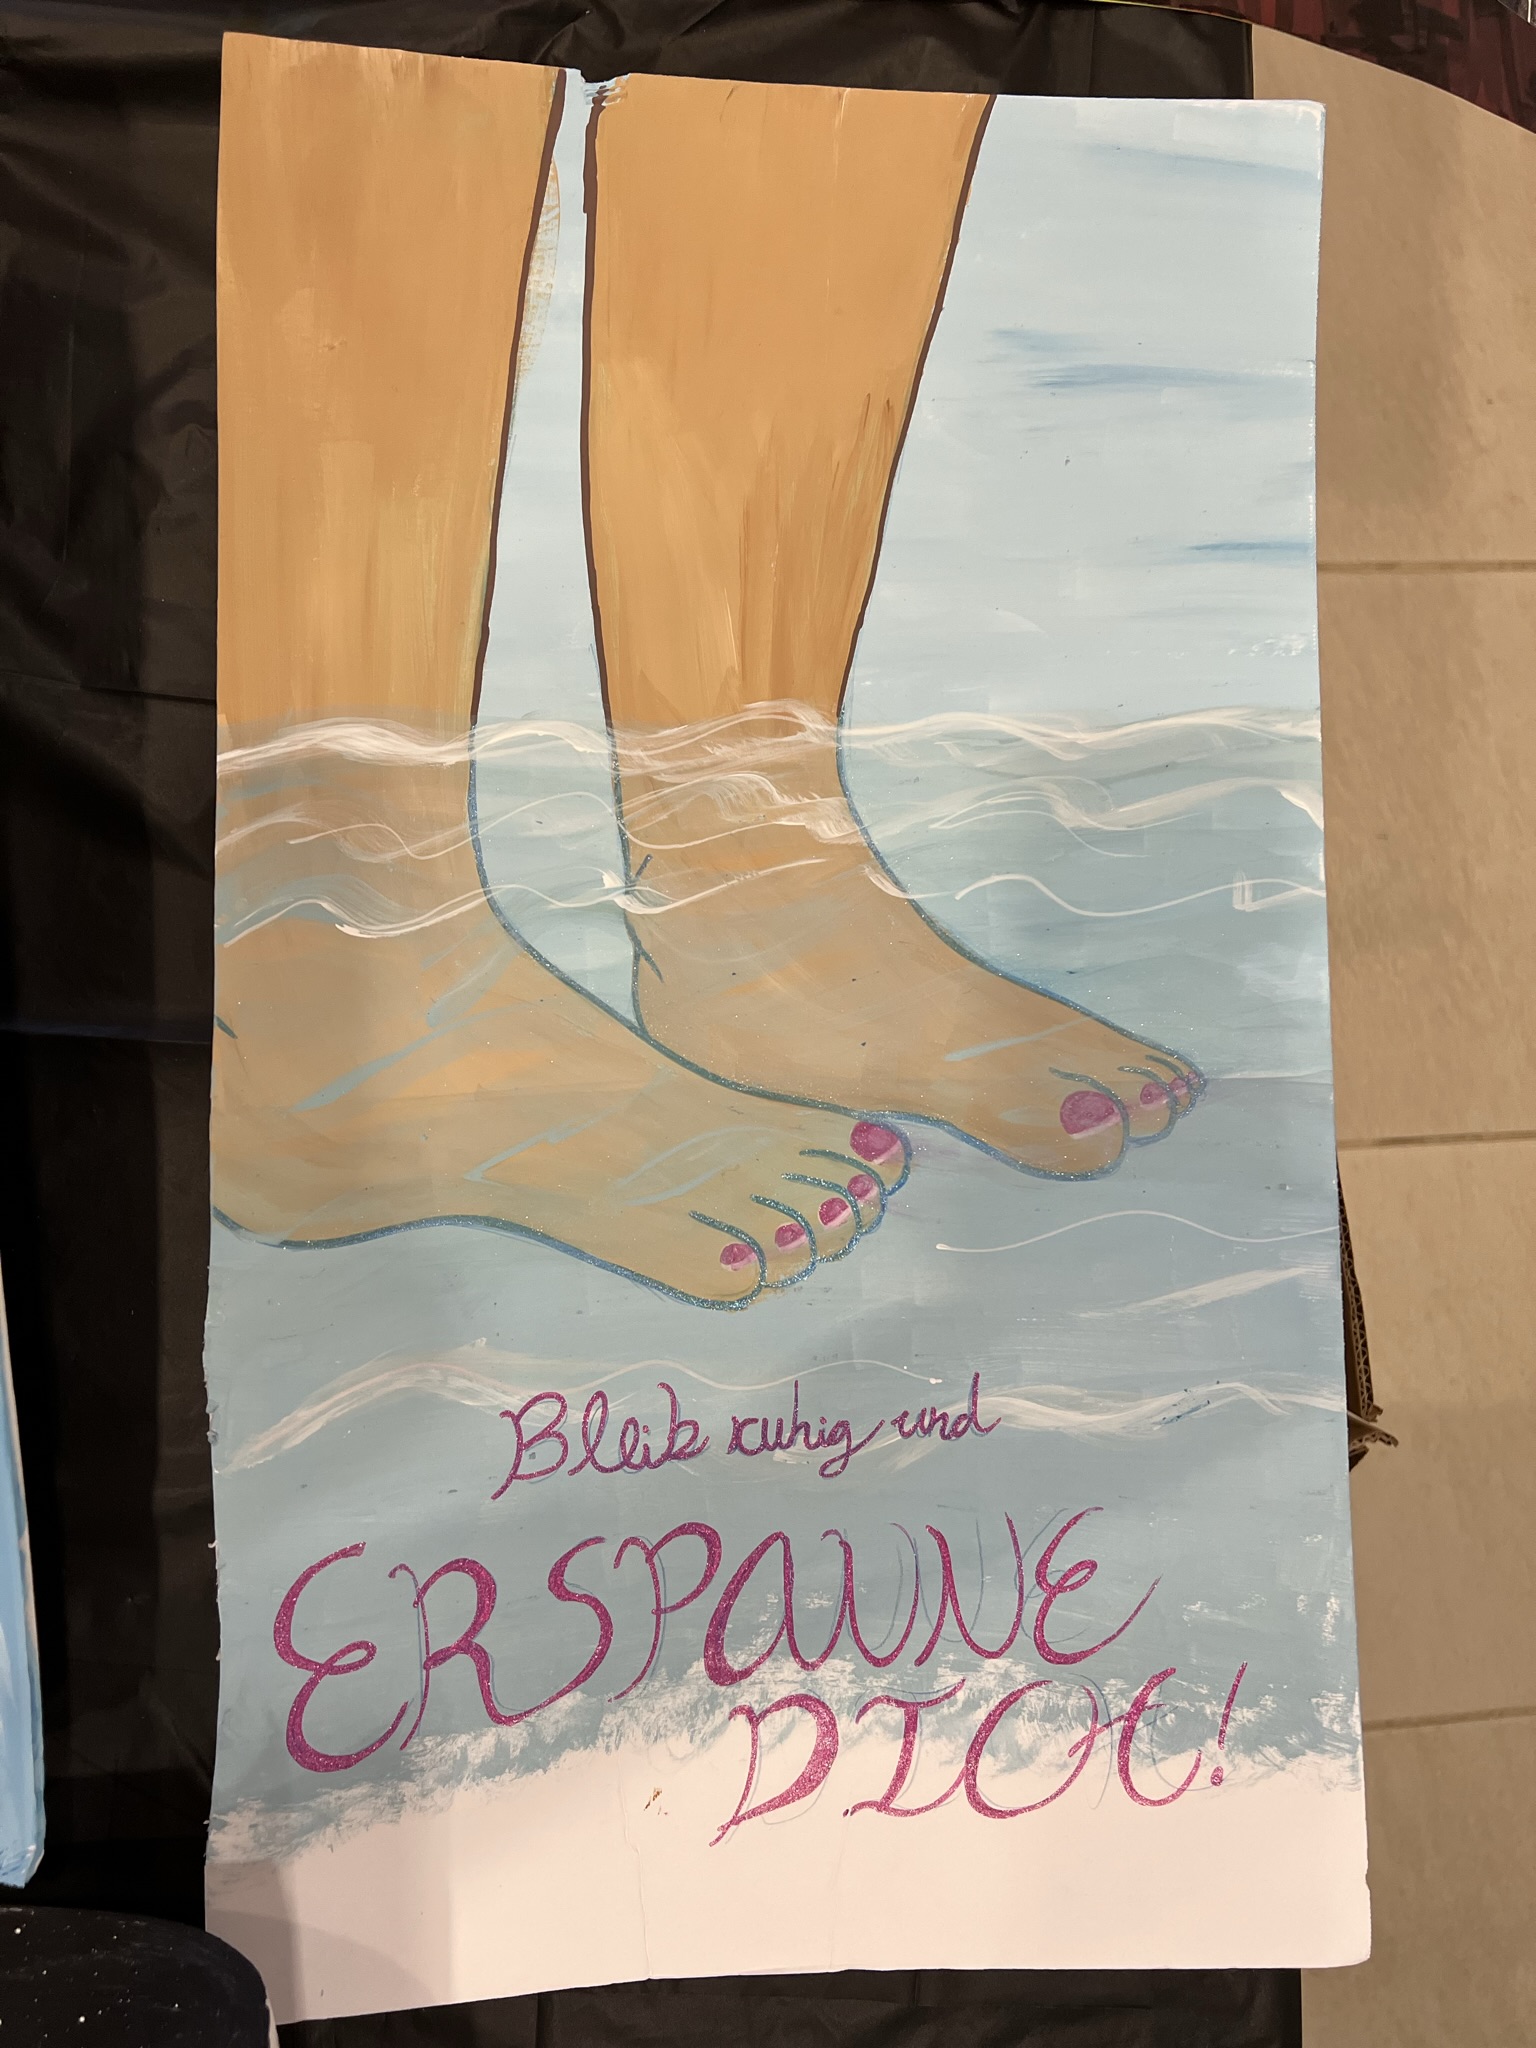 Bleib ruhig und
ERSPANNE
DICH!